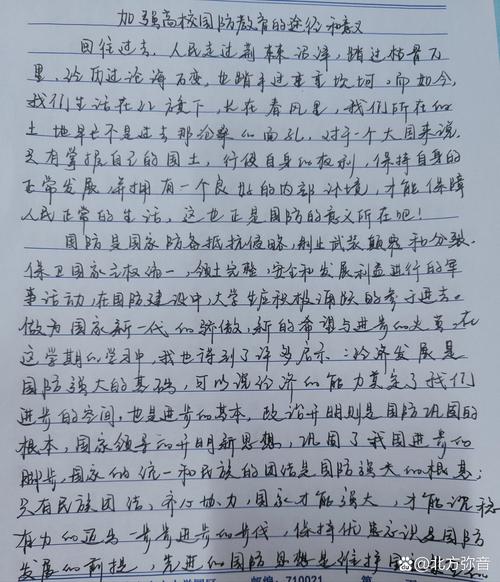 加强高校国防教育的途径和意义
回往过去,人民走过荆棘沼泽,踏过枯骨万
里,经历过沧海万变,也踏平过重重坎坷,而如今,
我们生活在红旗下,长在春风里,我们所在的
土地早已不是过去那沧桑的面孔,对于一个大国来说,
只有掌握自己的国土,行使自身的权利,保持自身的
正常发展,并拥有一个良好的内部环境,才能保障
人民正常的生活,这也正是国防的意义所在吧!
国防是国家防备抵抗侵略,制止武装颠覆和分裂,
保卫国家主权统一,领土完整,安全和发展利益进行的军
事活动,在国防建设中,大学生应积极踊跃的参于进去。
做为国家新一代的骄傲,新的希望与进步的火苗,在
这学期的学习中,我也得到了许多启示:经济发展是
国防强大的基础,可以说经济的能力奠定了我们
进步的空间,也是进步的基本,政治开明则是国防巩固的
根本,国家领导的开明新思想,巩固了我国进步的
脚步,国家的统一和民族的团结是国防强大的根基;
只有民族团结,齐心协力,国家才能强大,才能说稳
有力的迈出一步步进步的步伐,保持忧患意识是国防
发展的前提,先进的国防思想是维护国
邮编:710021
百家号/北方弥音